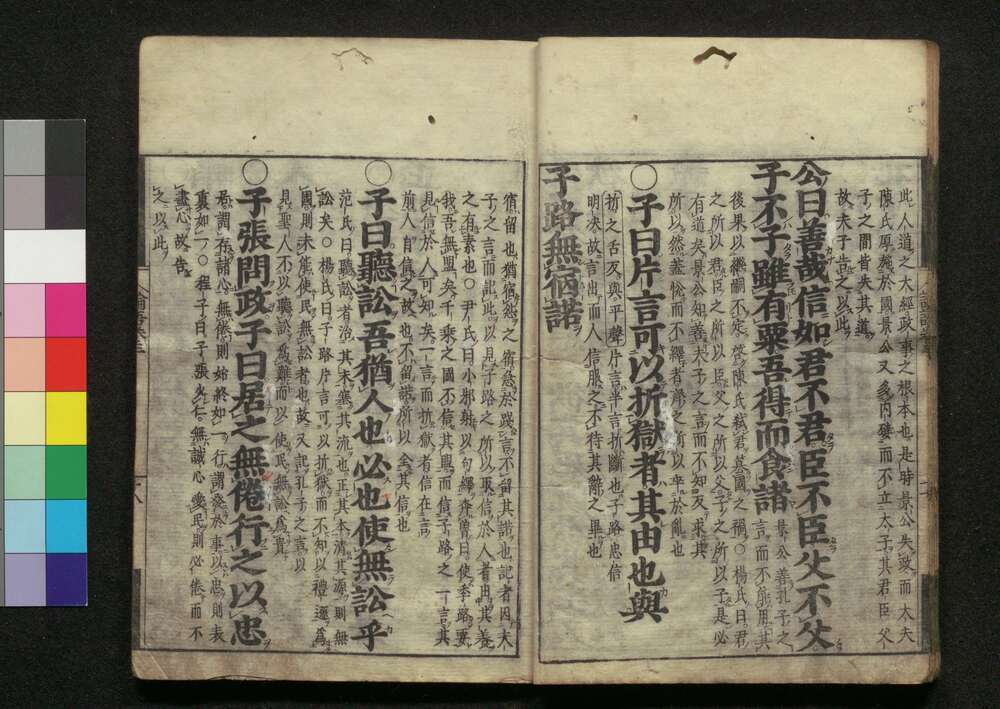 此人道之大經政事之根本也是時景公失政而大夫
陳氏厚施於國景公又多内嬖而不立太子其君臣父
子之間皆失其道
故夫子告之以此
公曰善哉信如君不君臣不臣父不父
子不子雖有粟吾得而食諸
景公善孔子之
言而不能用其
後果以繼嗣不定啓陳氏弑君簒國之禍○楊氏曰君
之所以君臣之所以臣父之所以父子之所以子是必
有道矣景公知善夫子之言而不知反求其
所以然蓋悅而不繹者齊之所以卒於亂也
○子曰片言可以折獄者其由也與
折之舌反與平聲片言半言折斷也子路忠信
明决故言出而人信服之不待其辭之畢也
子路無宿諾
宿留也猶宿怨之宿急於踐言不留其諾也記者因夫
子之言而記此以見子路之所以取信於人者由其養
之有素也○尹氏曰小邾射以句繹奔魯曰使季路要
我吾無盟矣千乘之國不信其盟而信子路之一言其
見信於人可知矣一言而折獄者信在言
前人自信之故也不留諾所以全其信也
○子曰聽訟吾猶人也必也使無訟乎
范氏曰聽訟者治其末塞其流也正其本清其源則無
訟矣○楊氏曰子路片言可以折獄而不知以禮遜爲
國則未能使民無訟者也故又記孔子之言以
見聖人不以聽訟爲難而以使民無訟爲貴
○子張問政子曰居之無倦行之以忠
居謂存諸心無倦則始終如一行謂發於事以忠則表
裏如一○程子曰子張少仁無誠心愛民則必倦而不
盡心故告
之以此